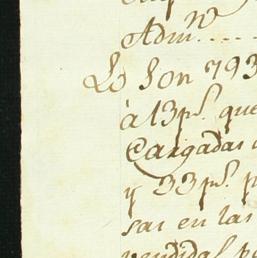 Adm.ⁿ
Lo Son 793
à 13 p.ˢ que
Cargadas
y 33 p.ˢ p
sas en las
vendidas po